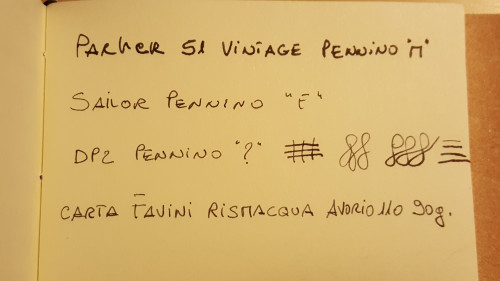 PARKER 51 VINTAGE PENNINO "M"
SAILOR PENNINO "F"
DP2 PENNINO "?"
CARTA FAVINI RISMACQUA AVORIO 110 90g.